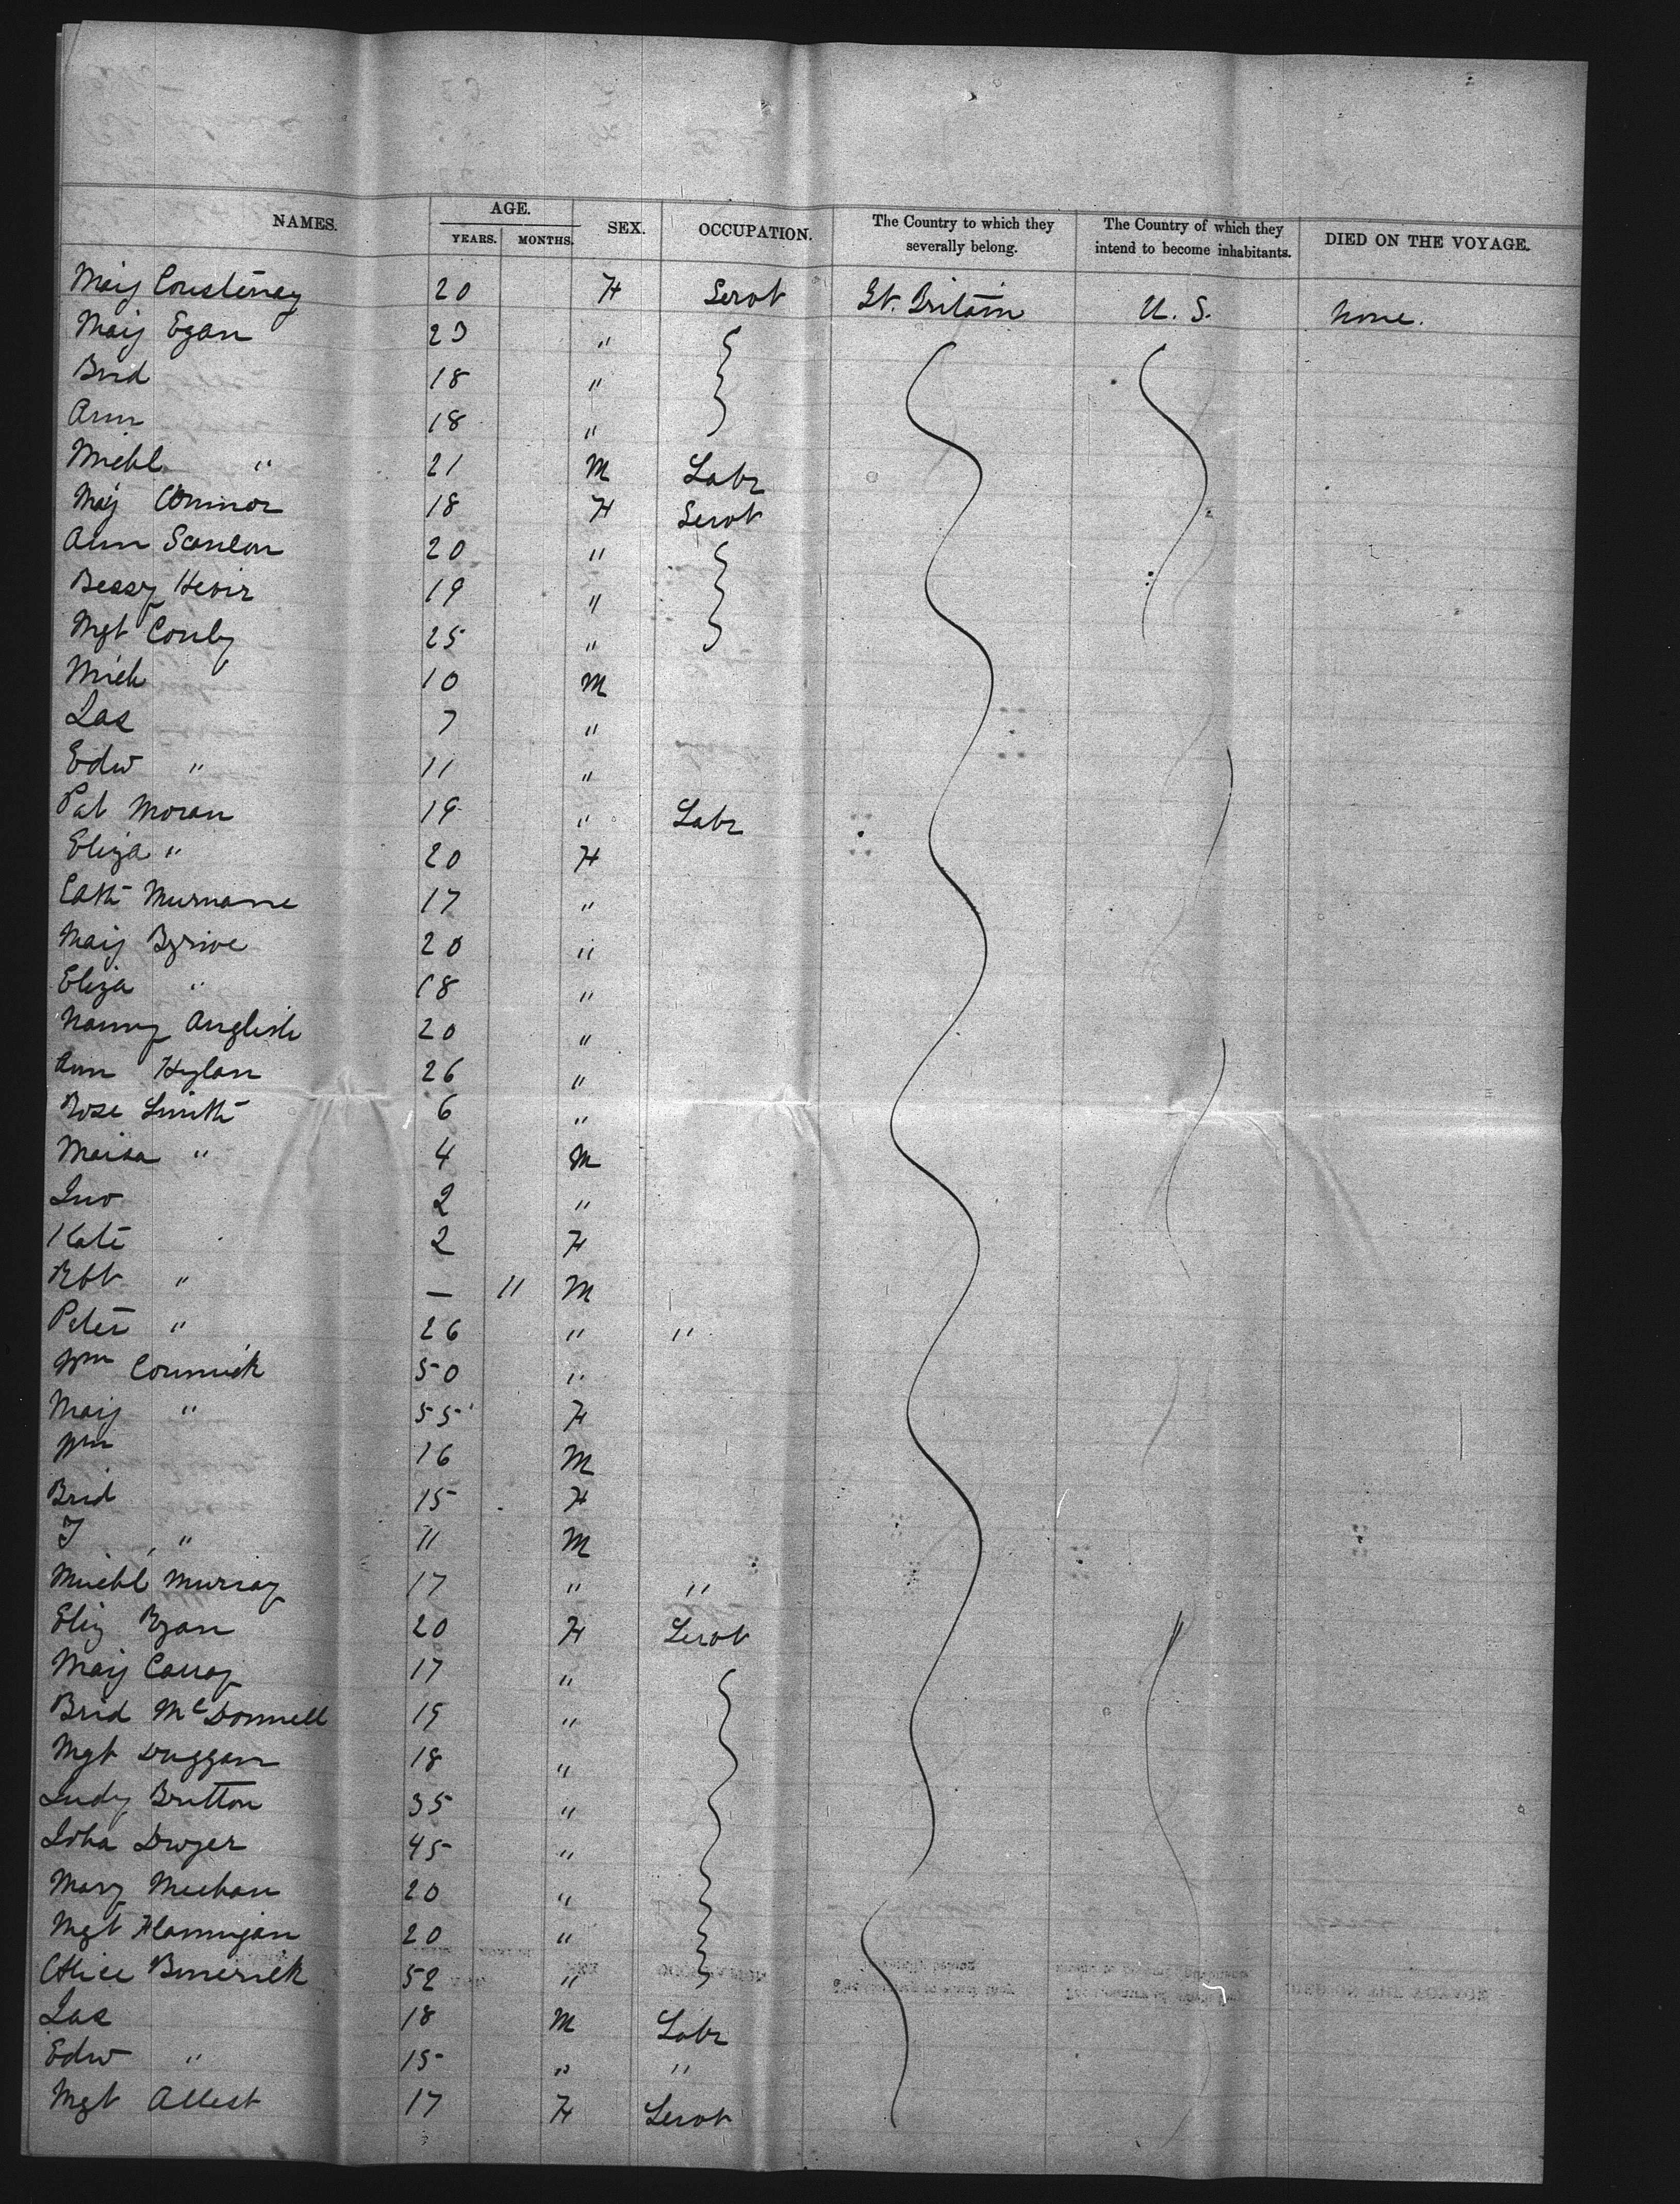 NAMES. AGE. YEARS. MONTHS. SEX. OCCUPATION. The Country to which they severally belong. The Country of which they intend to become inhabitants. DIED ON THE VOYAGE.
Mary Courtenay 20 F Servt Gt. Britain U. S. None.
Mary Egan 23 "
Brid 18 "
Ann 18 "
Michl " 21 M Labr
Mary Connor 18 F Servt
Ann Scanlon 20 "
Bessy Hevir 19 "
Mgt Conly 25 "
Mich 10 M
Jas 7 "
Edw " 11 "
Pat Moran 19 " Labr
Eliza " 20 F
Cath Murnane 17 "
Mary Byrne 20 "
Eliza " 18 "
Nanny Anglish 20 "
Ann Hylan 26 "
Rose Smith 6 "
" 4 M
Jno 2 "
Kate 2 F
Robt " — 11 M
Peter " 26 " "
Wm Cormick 50 "
Mary " 55 F
Wm 16 M
Brid 15 F
T " 11 M
Michl Murray 17 " "
Eliz Ryan 20 F Servt
Mary 17 "
Brid McDonnell 19 "
Mgt Duggan 18 "
Judy Britton 35 "
Joha Dwyer 45 "
Mary Meehan 20 "
Mgt Flannigan 20 "
Alice 52 "
Jas 18 M Labr
Edw " 15 " "
Mgt Allest 17 F Servt